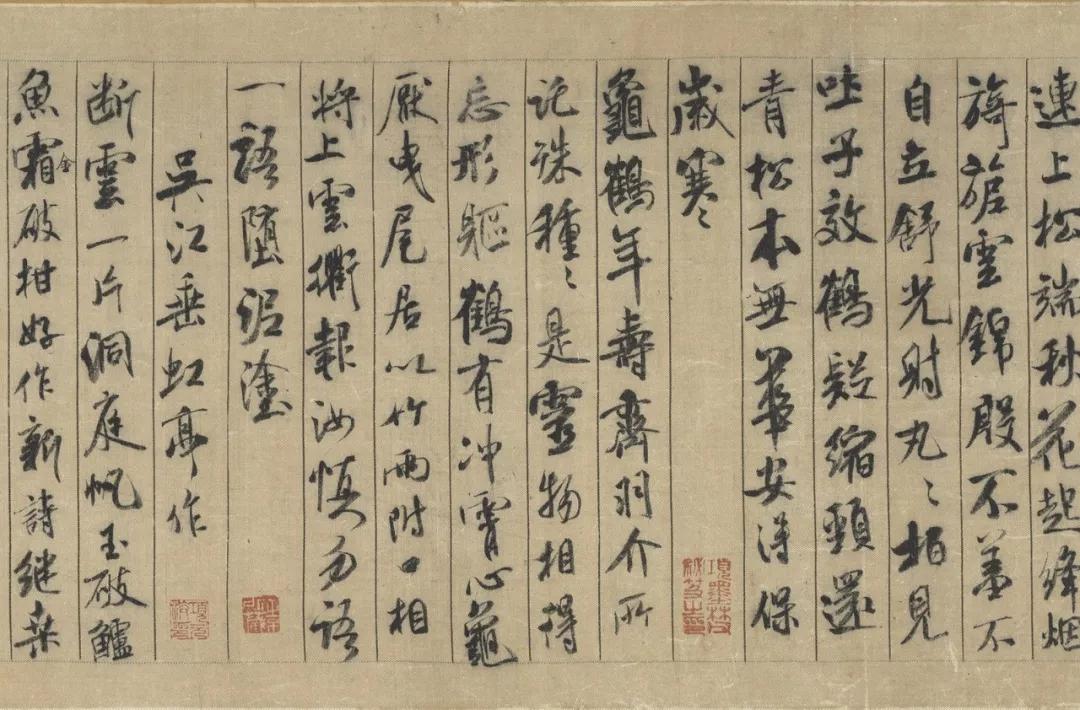 連上松端秋花起絳烟
旖旎雲錦殷不羞不
自立舒光射丸〻柏見
吐子效鶴疑縮頸還
青松本無華安得保
歲寒
龜鶴年壽齊羽介所
託殊種〻是靈物相得
忘形軀鶴有冲霄心龜
厭曳尾居以竹兩附口相
將上雲衢報汝慎勿語
一語墮泥塗
吳江垂虹亭作
断雲一片洞庭帆玉破鱸
魚霜金破柑好作新詩継桑
項墨林
秘笈之印